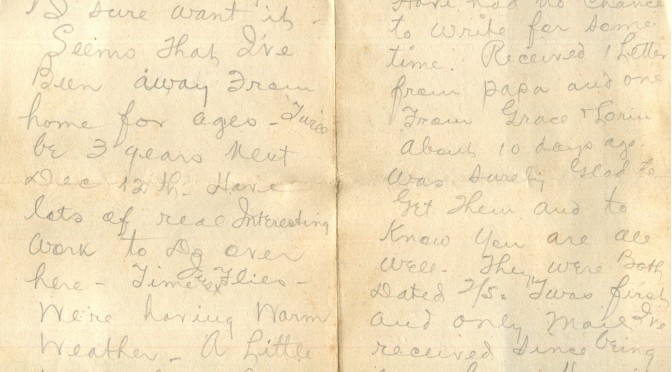 I'd sure want it -
Seems that I've
Been away From
home for ages - Twill
be 3 years Next
Dec 12th. Have
lots of real Interesting
work to Do over
here - Time Flies -
We're having Warm
Weather - A Little
Have had no chance
to write for some
time. Received 1 Letter
from papa and one
From Grace & Lorin
About 10 days ago.
Was surely glad to
Get Them and to
Know You are all
well. They were Both
Dated 2/5. Twas first
and only Mail I've
received since being